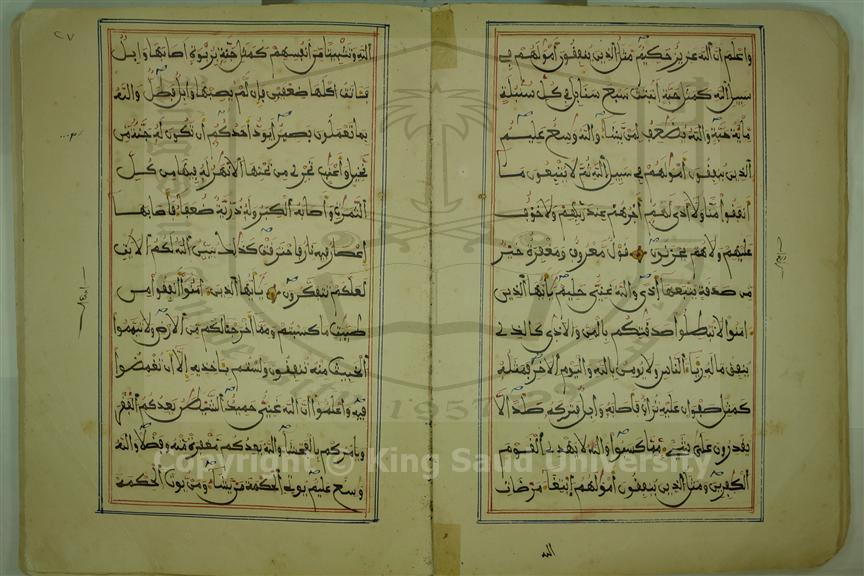 واعلم ان الله عزيز حكيم مثل الذين ينفقون اموالهم في
سبيل الله كمثل حبة انبتت سبع سنابل في كل سنبلة
مائة حبة والله يضعف لمن يشاء والله وسع عليم
الذين ينفقون امولهم في سبيل الله ثم لا يتبعون ما
انفقوا منا ولا اذى لهم اجرهم عند ربهم ولا خوف
عليهم ولا هم يحزنون قول معروف ومغفرة خير
من صدقة يتبعها اذى والله غني حليم يأيها الذين
امنوا لا تبطلوا صدقتكم بالمن والاذى كالذي
ينفق ماله رئاء الناس ولا يومن بالله واليوم الاخر فمثله
كمثل صفوان عليه تراب فاصابه وابل فتركه صلدا لا
يقدرون على شيء مما كسبوا والله لا يهدي القوم
الكفرين ومثل الذين ينفقون امولهم ابتغاء مرضات
الله وتثبيتا من انفسهم كمثل جنة بربوة اصابها وابل
فئاتت اكلها ضعفين فإن لم يصبها وابل فطل والله
بما تعملون بصير ايود احدكم أن تكون له جنة من
نخيل وأعنب تجري من تحتها الانهر له فيها من كل
الثمرت واصابه الكبر وله ذرية ضعفاء فأصابها
إعصار فيه نار فاحترقت كذلك يبين الله لكم الايت
لعلكم تتفكرون يأيها الذين امنوا أنفقوا من
طيبت ما كسبتم ومما أخرجنا لكم من الارض ولا تيمموا
الخبيث منه تنفقون ولستم بئاخذيه إلا أن تغمضوا
فيه واعلموا أن الله غني حميد الشيطن يعدكم الفقر
ويأمركم بالفحشاء والله يعدكم مغفرة منه وفضلا والله
وسع عليم يوتي الحكمة من يشاء ومن يوت الحكمة
الله
٢٧
Copyright © King Saud University
1957